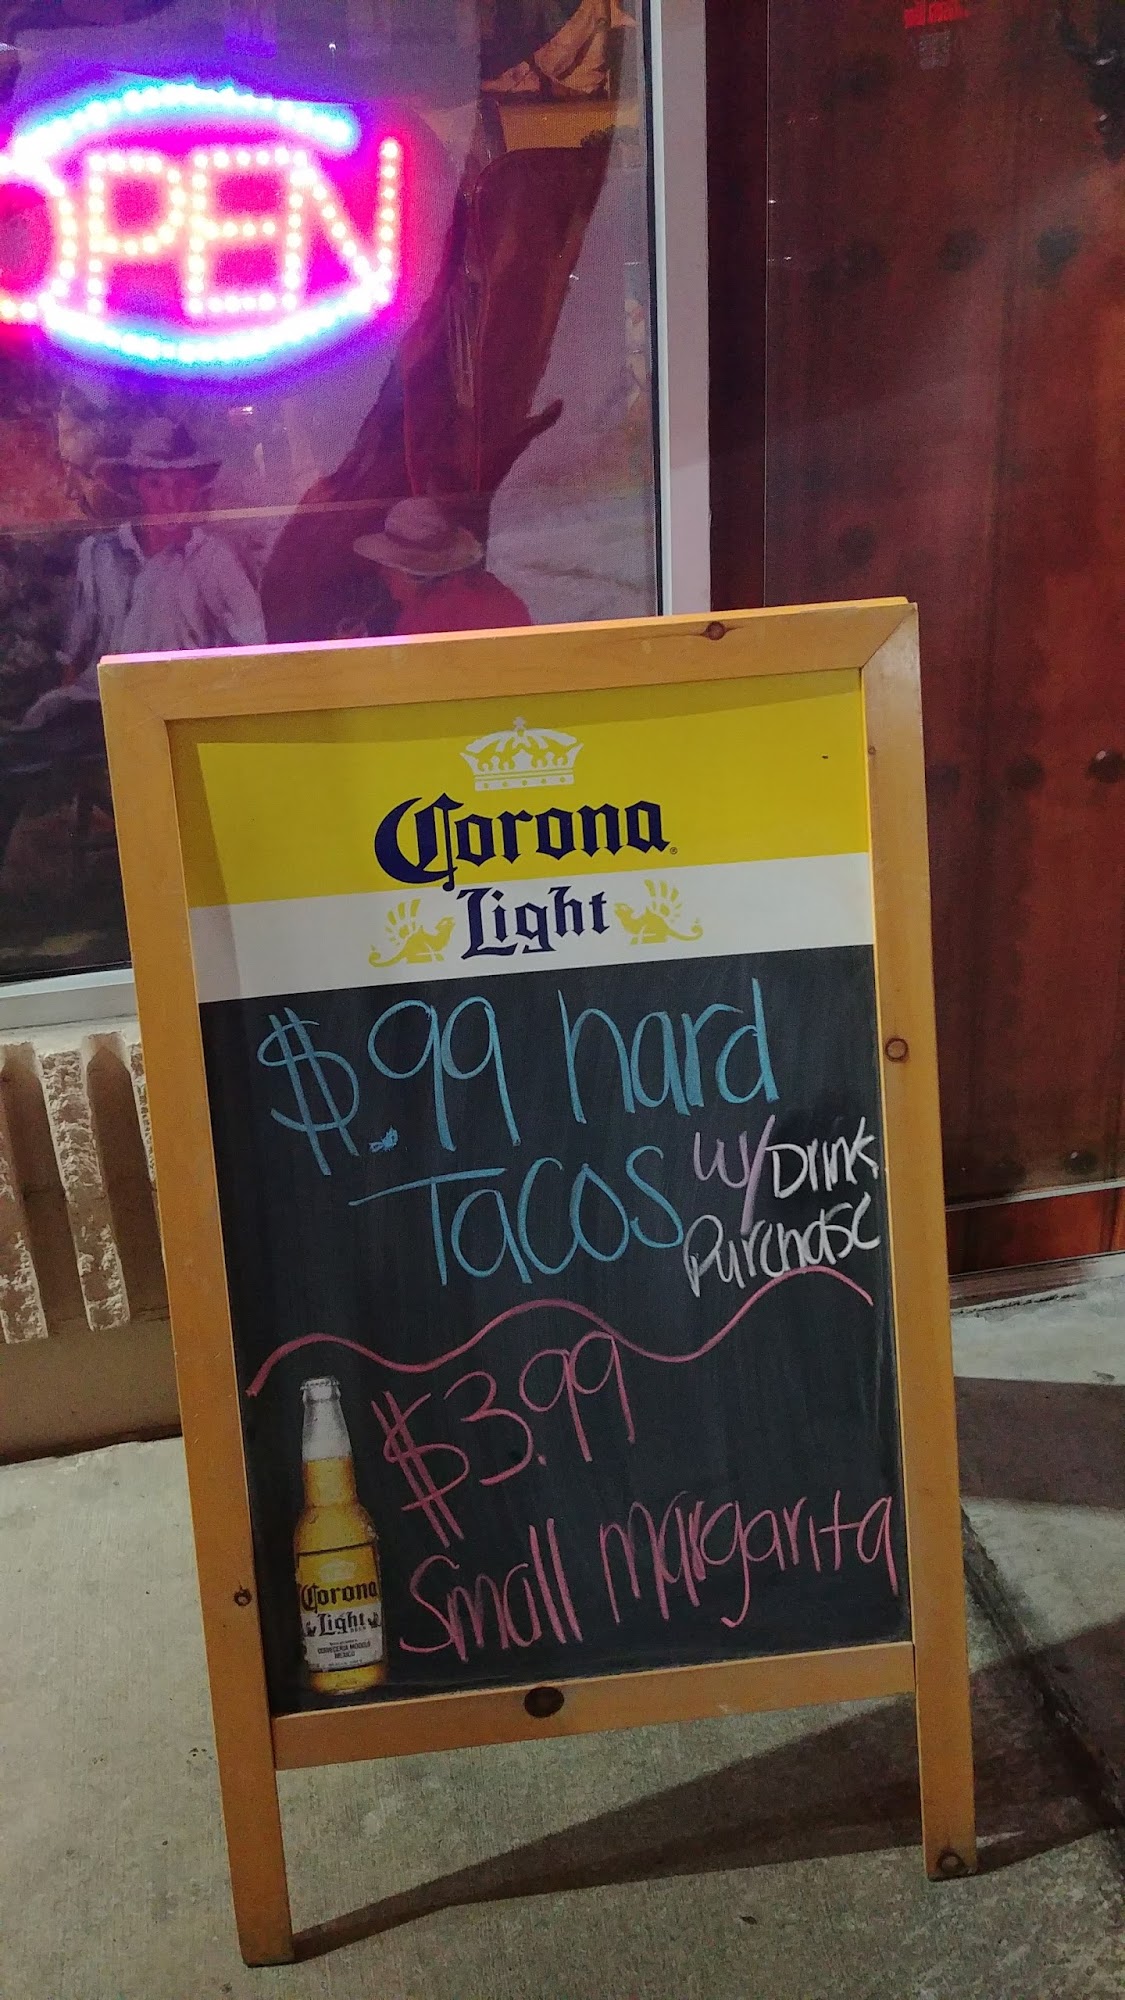 OPEN
Corona
Light
$.99 hard
Tacos w/Drink
Purchase
$3.99
Small margarita
Corona
Light
CERVECERIA MODELO
MEXICO